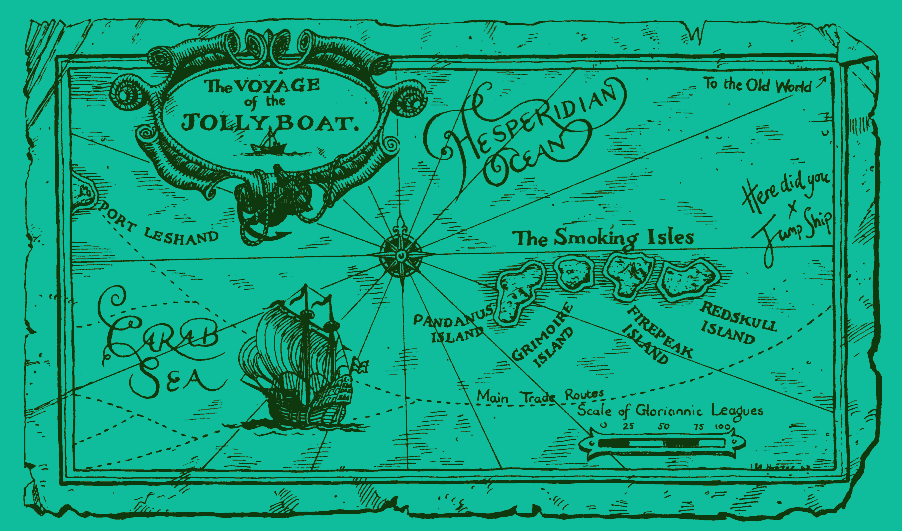 The VOYAGE
of the
JOLLY BOAT.
HESPERIDIAN
OCEAN
To the Old World
Here did you
x
Jump Ship
PORT LESHAND
The Smoking Isles
PANDANUS
ISLAND
GRIMOIRE
ISLAND
FIREPEAK
ISLAND
REDSKULL
ISLAND
Main Trade Routes
Scale of Gloriannic Leagues
0 25 50 75 100
SEA